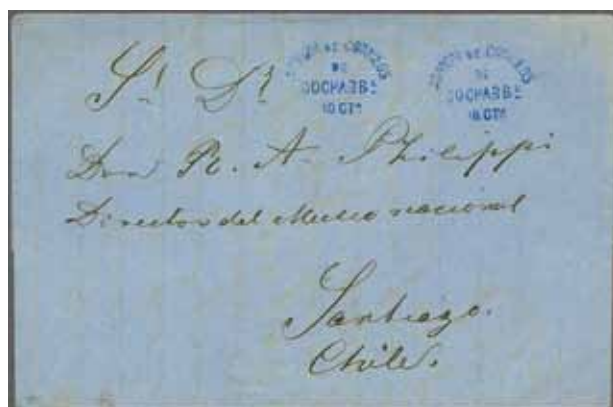 Sr. Dr.
DE
COCHABBA
10 CTS
DE
COCHABBA
10 CTS
Don R. A. Philippi
Director del Museo nacional
Santiago.
Chile.